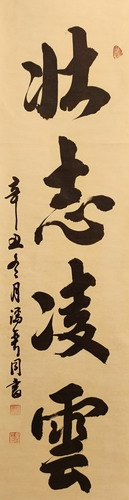 壮志凌雲
辛丑冬月馮秀同書